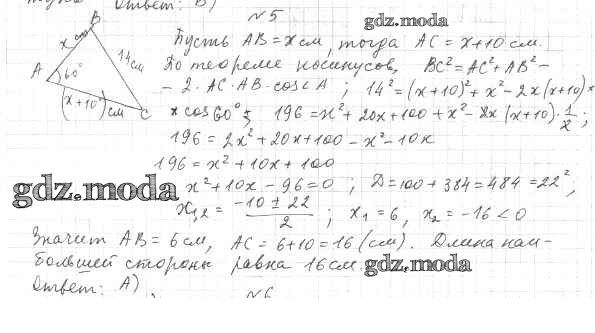 Ответ: В)
№5
gdz.moda
B
x см
14 см
A
60°
(x+10) см
C
Пусть AB = x см, тогда AC = x+10 см.
По теореме косинусов, BC² = AC² + AB² –
– 2 · AC · AB · cos∠A ; 14² = (x+10)² + x² – 2x(x+10) ×
× cos 60° ; 196 = x² + 20x + 100 + x² – 2x (x+10) · 1/2 ;
196 = 2x² + 20x + 100 – x² – 10x
196 = x² + 10x + 100
gdz.moda
x² + 10x – 96 = 0 ; D = 100 + 384 = 484 = 22² ,
x₁,₂ = (–10 ± 22)/2 ; x₁ = 6, x₂ = –16 < 0
Значит AB = 6 см, AC = 6+10 = 16 (см). Длина наи-
большей стороны равна 16 см.
gdz.moda
Ответ: А)
№6